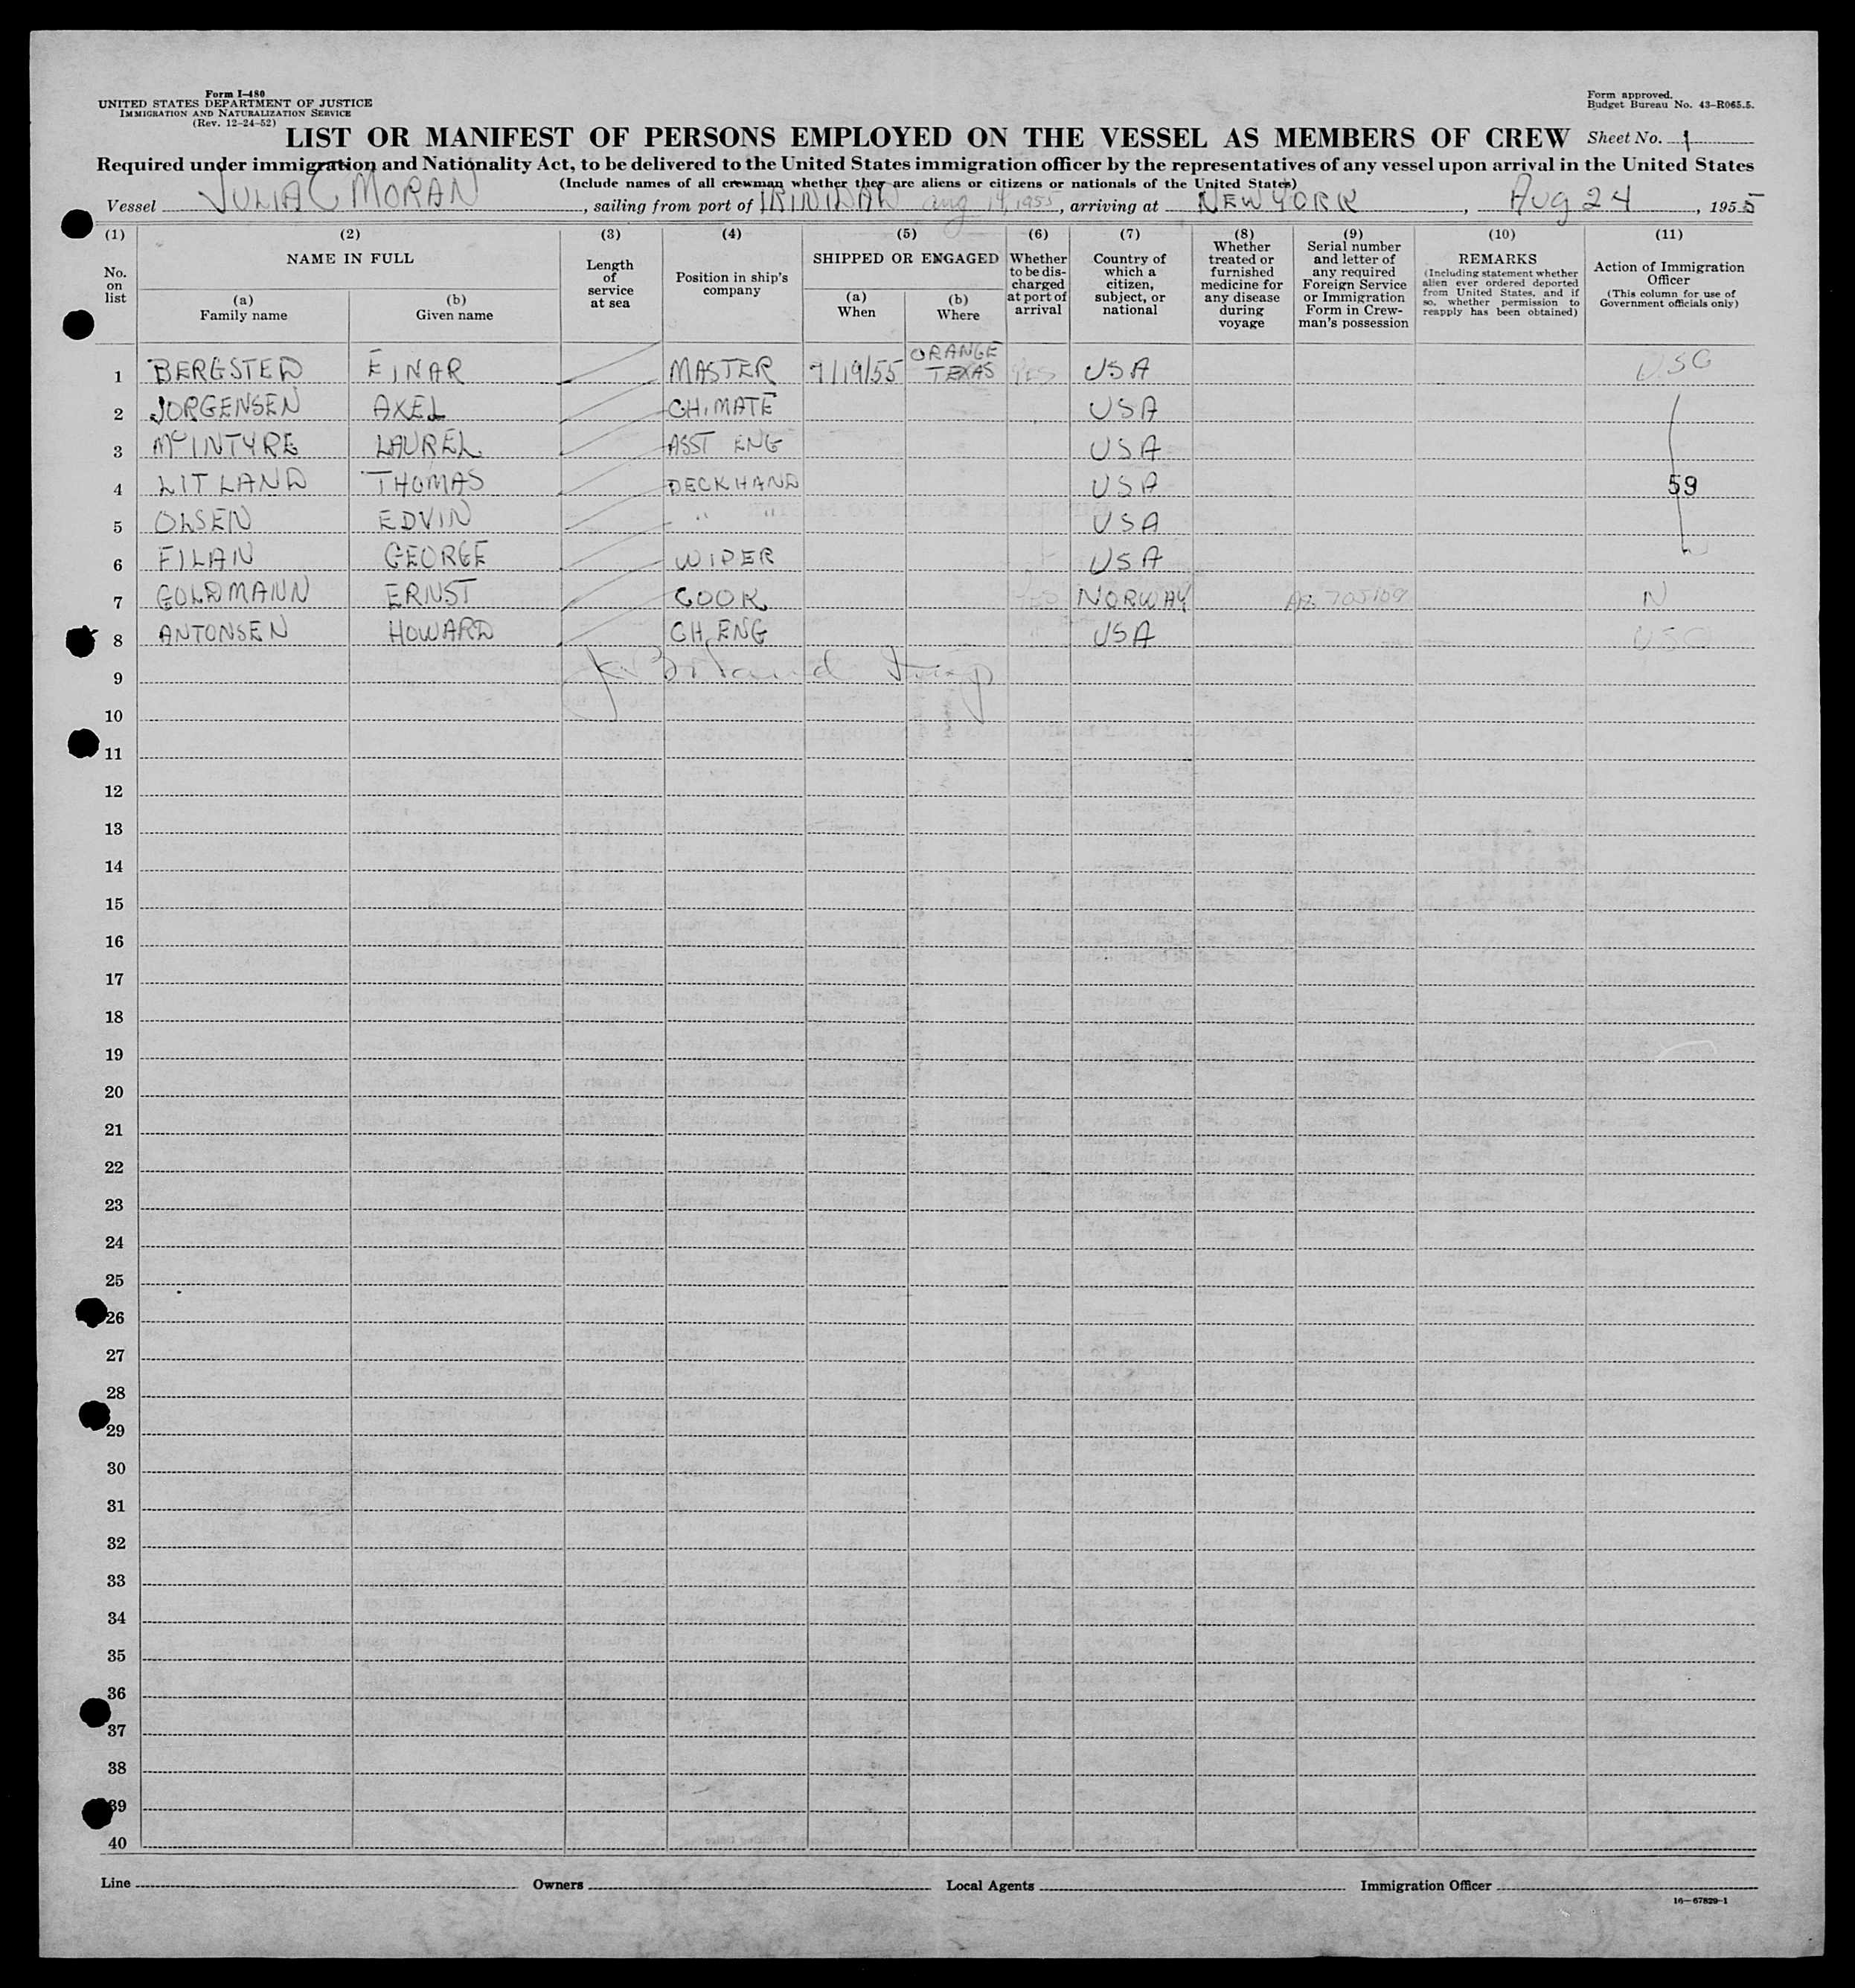 Form I-480
UNITED STATES DEPARTMENT OF JUSTICE
IMMIGRATION AND NATURALIZATION SERVICE
(Rev. 12-24-52)
Form approved.
Budget Bureau No. 43-R065.5.
LIST OR MANIFEST OF PERSONS EMPLOYED ON THE VESSEL AS MEMBERS OF CREW Sheet No. 1
Required under immigration and Nationality Act, to be delivered to the United States immigration officer by the representatives of any vessel upon arrival in the United States
(Include names of all crewman whether they are aliens or citizens or nationals of the United States)
Vessel JULIA C MORAN, sailing from port of TRINIDAD Aug 14, 1955, arriving at NEW YORK, Aug 24, 1955
(1) (2) (3) (4) (5) (6) (7) (8) (9) (10) (11)
No. on list
NAME IN FULL
(a) Family name
(b) Given name
Length of service at sea
Position in ship's company
SHIPPED OR ENGAGED
(a) When
(b) Where
Whether to be discharged at port of arrival
Country of which a citizen, subject, or national
Whether treated or furnished medicine for any disease during voyage
Serial number and letter of any required Foreign Service or Immigration Form in Crewman's possession
REMARKS
(Including statement whether alien ever ordered deported from United States, and if so, whether permission to reapply has been obtained)
Action of Immigration Officer
(This column for use of Government officials only)
1 BERGSTED EINAR MASTER 7/19/55 ORANGE TEXAS yes USA USC
2 JORGENSEN AXEL CH. MATE USA
3 McINTYRE LAUREL ASST ENG USA
4 LITLAND THOMAS DECKHAND USA 59
5 OLSEN EDVIN " " USA
6 FILAN GEORGE WIPER USA
7 GOLDMANN ERNST COOK yes NORWAY N
8 ANTONSEN HOWARD CH. ENG USA USC
9
10
11
12
13
14
15
16
17
18
19
20
21
22
23
24
25
26
27
28
29
30
31
32
33
34
35
36
37
38
39
40
Line Owners Local Agents Immigration Officer
16-67829-1